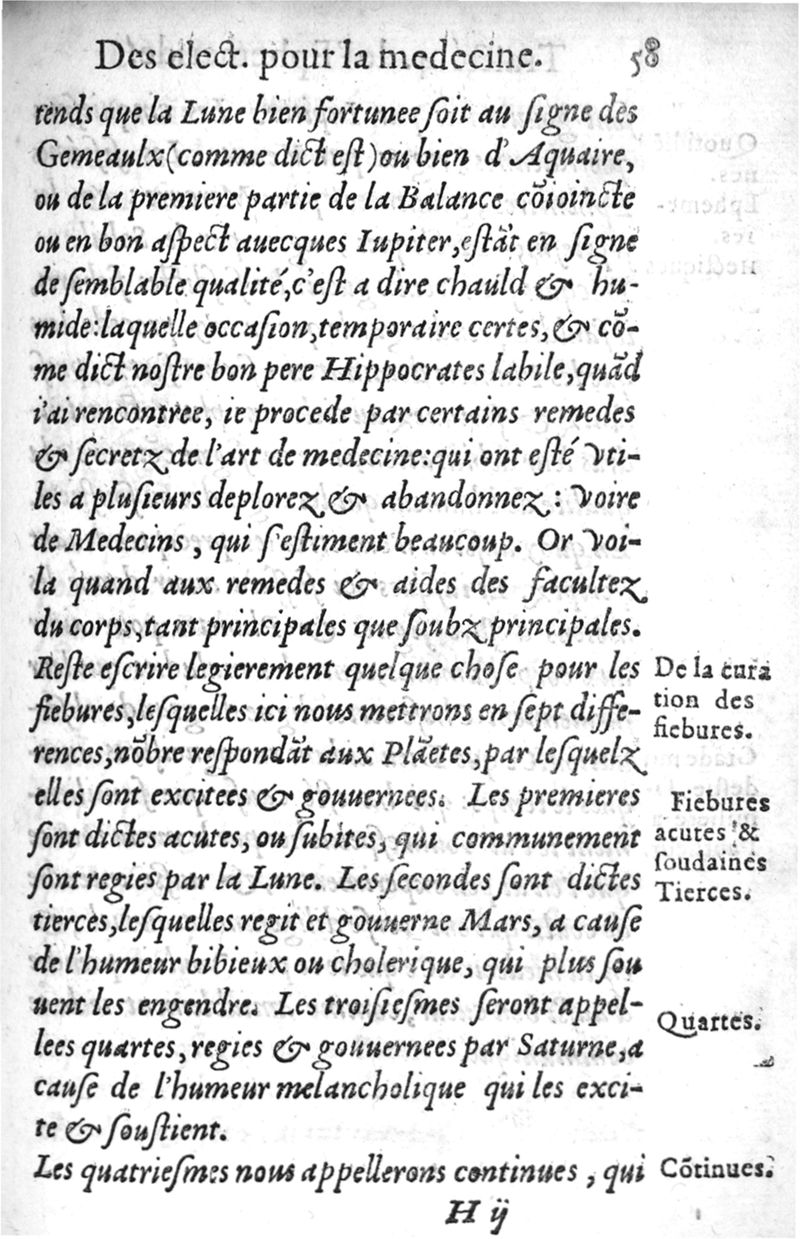 Des elect. pour la medecine. 58
tends que la Lune bien fortunee ſoit au ſigne des
Gemeaulx (comme dict eſt) ou bien d'Aquaire,
ou de la premiere partie de la Balance cõioincte
ou en bon aſpect auecques Iupiter, eſtãt en ſigne
de ſemblable qualité, c'eſt a dire chauld & hu-
mide: laquelle occaſion, temporaire certes, & cõ-
me dict noſtre bon pere Hippocrates labile, quãd
i'ai rencontree, ie procede par certains remedes
& ſecretz de l'art de medecine: qui ont eſté vti-
les a pluſieurs deplorez & abandonnez: voire
de Medecins, qui ſ'eſtiment beaucoup. Or voi-
la quand aux remedes & aides des facultez
du corps, tant principales que ſoubz principales.
Reſte eſcrire legierement quelque choſe pour les
fiebures, leſquelles ici nous mettrons en ſept diffe-
rences, nõbre reſpondãt aux Plãetes, par leſquelz
elles ſont excitees & gouuernees. Les premieres
ſont dictes acutes, ou ſubites, qui communement
ſont regies par la Lune. Les ſecondes ſont dictes
tierces, leſquelles regit et gouuerne Mars, a cauſe
de l'humeur bibieux ou cholerique, qui plus ſou
uent les engendre. Les troiſieſmes ſeront appel-
lees quartes, regies & gouuernees par Saturne, a
cauſe de l'humeur melancholique qui les exci-
te & ſouſtient.
Les quatrieſmes nous appellerons continues, qui
H ij
De la cura
tion des
fiebures.
Fiebures
acutes &
ſoudaines
Tierces.
Quartes.
Cõtinues.